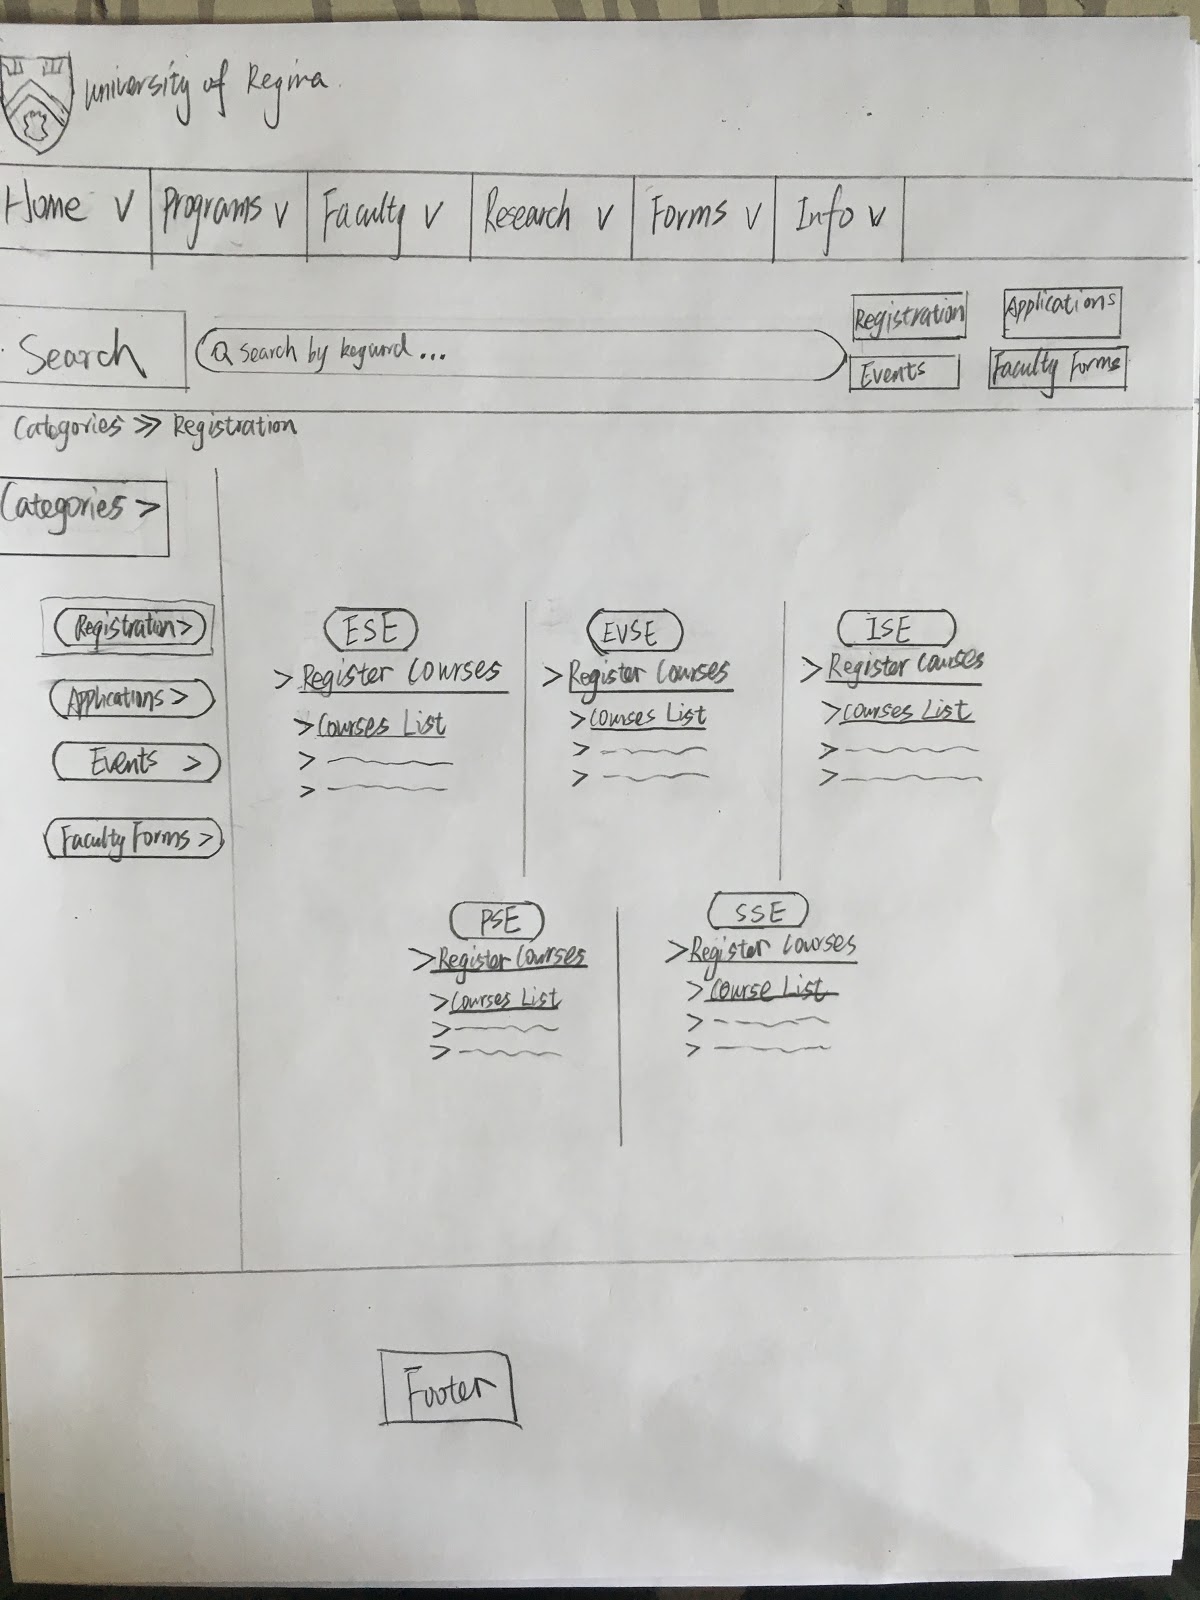 University of Regina
Home V Programs V Faculty V Research V Forms V Info V
Search
Search by keyword...
Registration Applications
Events Faculty Forms
Categories >> Registration
Categories >
Registration >
Applications >
Events >
Faculty Forms >
ESE
> Register Courses
> Courses List
>
>
EVSE
> Register Courses
> Courses List
>
>
ISE
> Register Courses
> Courses List
>
>
PSE
> Register Courses
> Courses List
>
>
SSE
> Register Courses
> Course List
>
>
Footer